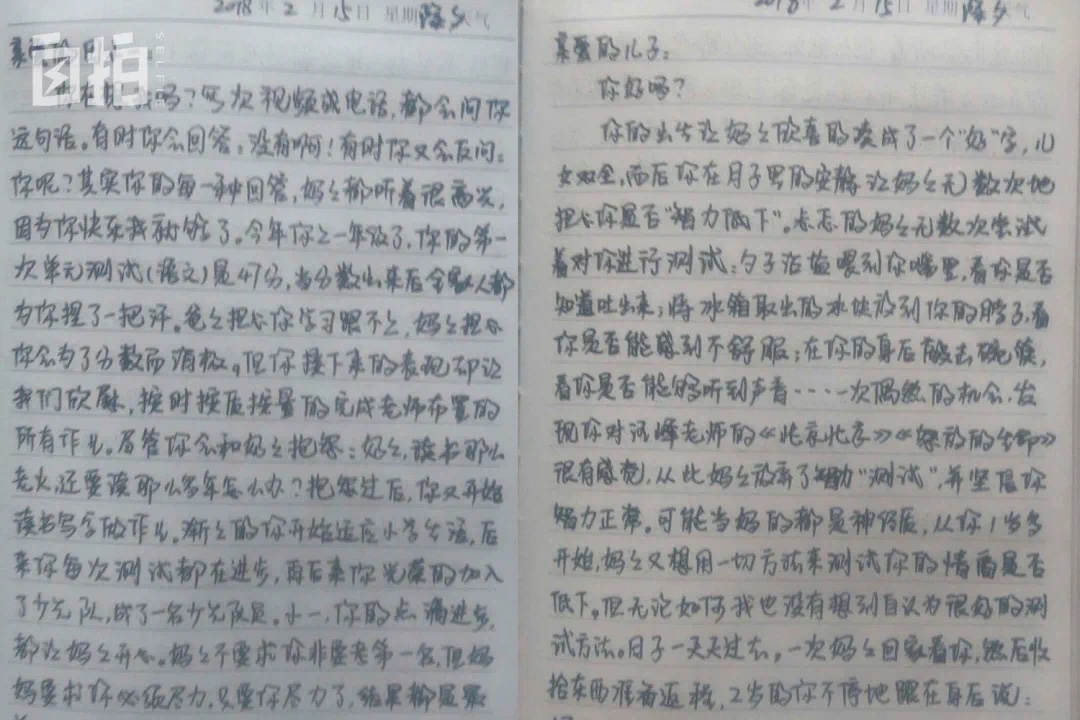 2018年2月15日 星期 除夕 天气
图拍
SELFIE
在 吗？每次视频或电话，都会问你
这句话。有时你会回答：没有啊！有时你又会反问：
你呢？其实你的每一种回答，妈妈都听着很高兴，
因为你快乐我就够了。今年你上一年级了，你的第一
次单元测试（语文）是47分，当分数出来后全家人都
为你捏了一把汗。爸爸担心你学习跟不上，妈妈担心
你会为了分数而消极。但你接下来的表现却让
我们欣慰，按时按质按量的完成老师布置的
所有作业。尽管你会和妈妈抱怨：妈妈，读书那么
老火，还要读那么多年怎么办？抱怨过后，你又开始
读书写字做作业。渐渐的你开始适应小学生活，后
来你每次测试都在进步，再后来你光荣的加入
了少先队，成了一名少先队员。小一，你的点滴进步，
都让妈妈开心。妈妈不要求你非要考第一名，但妈
妈要求你必须尽力，只要你尽力了，结果都是
2018年2月15日 星期 除夕 天气
亲爱的儿子：
你好吗？
你的出生让妈妈欣喜的凑成了一个“好”字，儿
女双全，而后你在月子里的安静让妈妈无数次地
担心你是否“智力低下”。忐忑的妈妈无数次尝试
着对你进行测试：勺子沾盐喂到你嘴里，看你是否
知道吐出来；将冰箱取出的冰块放到你的脖子，看
你是否能感到不舒服；在你的身后敲击碗筷，
看你是否能够听到声音……一次偶然的机会，发
现你对汪峰老师的《北京北京》《怒放的生命》
很有感觉，从此妈妈放弃了智力“测试”，并坚信你
智力正常。可能当妈的都是神经质，从你1岁多
开始，妈妈又想用一切方法来测试你的情商是否
低下。但无论如何我也没有想到自认为很好的测
试方法。日子一天天过去，一次妈妈回家看你，然后收
拾东西准备返程，2岁的你不停地跟在身后说：